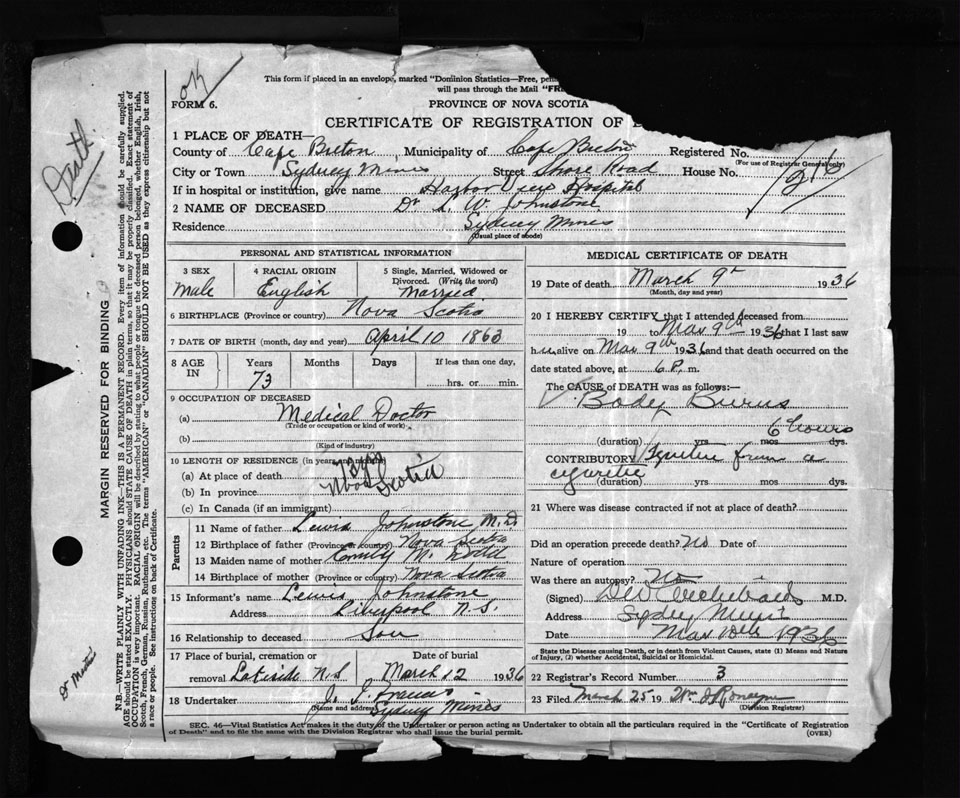 OK
This form if placed in an envelope, marked "Dominion Statistics—Free,
will pass through the Mail
FORM 6.
PROVINCE OF NOVA SCOTIA
CERTIFICATE OF REGISTRATION OF
Death
1 PLACE OF DEATH—
County of Cape Breton, Municipality of Cape Breton Registered No.
(For use of Registrar General only)
216
City or Town Sydney Mines Street Shore Road House No.
If in hospital or institution, give name Harbor View Hospital
2 NAME OF DECEASED Dr L. W. Johnstone
Residence Sydney Mines
(Usual place of abode)
PERSONAL AND STATISTICAL INFORMATION
3 SEX Male
4 RACIAL ORIGIN English
5 Single, Married, Widowed or Divorced. (Write the word) Married
6 BIRTHPLACE (Province or country) Nova Scotia
7 DATE OF BIRTH (month, day and year) April 10 1863
8 AGE IN Years 73 Months Days If less than one day, hrs. or min.
9 OCCUPATION OF DECEASED
(a) Medical Doctor
(Trade or occupation or kind of work)
(b)
(Kind of industry)
10 LENGTH OF RESIDENCE (in years and months)
(a) At place of death
(b) In province Nova Scotia
(c) In Canada (if an immigrant)
Parents
11 Name of father Lewis Johnstone M.D.
12 Birthplace of father (Province or country) Nova Scotia
13 Maiden name of mother
14 Birthplace of mother (Province or country) Nova Scotia
15 Informant's name Lewis Johnstone
Address Liverpool N.S.
16 Relationship to deceased Son
17 Place of burial, cremation or removal N.S. Date of burial March 12 1936
18 Undertaker J. J. Francis
(Name and address) Sydney Mines
MEDICAL CERTIFICATE OF DEATH
19 Date of death March 9th 1936
(Month, day and year)
20 I HEREBY CERTIFY that I attended deceased from
19 to Mar 9th 1936 that I last saw
him alive on Mar 9th 1936 and that death occurred on the
date stated above, at 6 P. m.
The CAUSE of DEATH was as follows:—
Body Burns
6 hours
(duration) yrs mos dys.
CONTRIBUTORY Ignition from a
cigarette
(duration) yrs. mos. dys.
21 Where was disease contracted if not at place of death?
Did an operation precede death? No Date of
Nature of operation
Was there an autopsy? No
(Signed) Archibald M.D.
Address Sydney Mines
Date Mar 10th 1936
State the Disease causing Death, or in death from Violent Causes, state (1) Means and Nature
of Injury, (2) whether Accidental, Suicidal or Homicidal.
22 Registrar's Record Number 3
23 Filed March 25 19
(Division Registrar)
SEC. 46—Vital Statistics Act makes it the duty of the Undertaker or person acting as Undertaker to obtain all the particulars required in the "Certificate of Registration
of Death" and to file the same with the Division Registrar who shall issue the burial permit.
(OVER)
MARGIN RESERVED FOR BINDING
N.B.—WRITE PLAINLY WITH UNFADING INK—THIS IS A PERMANENT RECORD. Every item of information should be carefully supplied.
AGE should be stated EXACTLY. PHYSICIANS should STATE CAUSE OF DEATH in plain terms, so that it may be properly classified. Exact statement of
OCCUPATION is very important. RACIAL ORIGIN will be described by stating to what people or tongue the deceased person belonged, whether English, Irish,
Scotch, French, German, Russian, Ruthenian, etc. The terms "AMERICAN" or "CANADIAN" SHOULD NOT BE USED as they express citizenship but not
a race or people. See instructions on back of Certificate.